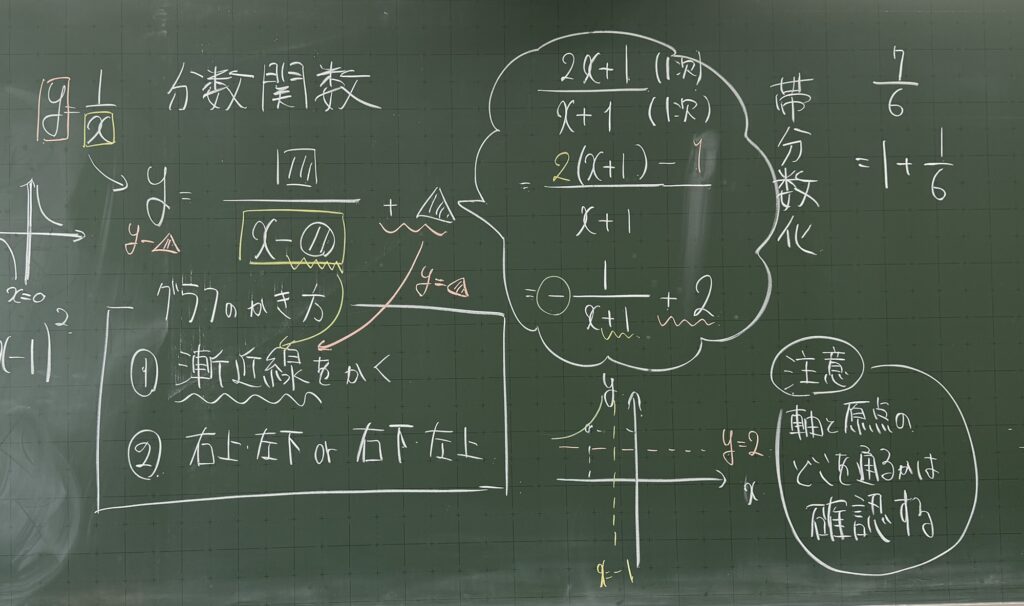 y=1/x
分数関数
y = □/(x-○) + △
y-△
y=△
x=0
x-1)²
グラフのかき方
① 漸近線をかく
② 右上・左下 or 右下・左上
2x+1 (1次)
x+1 (1次)
= (2(x+1) - 1)/(x+1)
= - 1/(x+1) + 2
帯分数化
7/6
= 1 + 1/6
y
y=2
x
x=-1
注意
軸と原点の
どこを通るかは
確認する